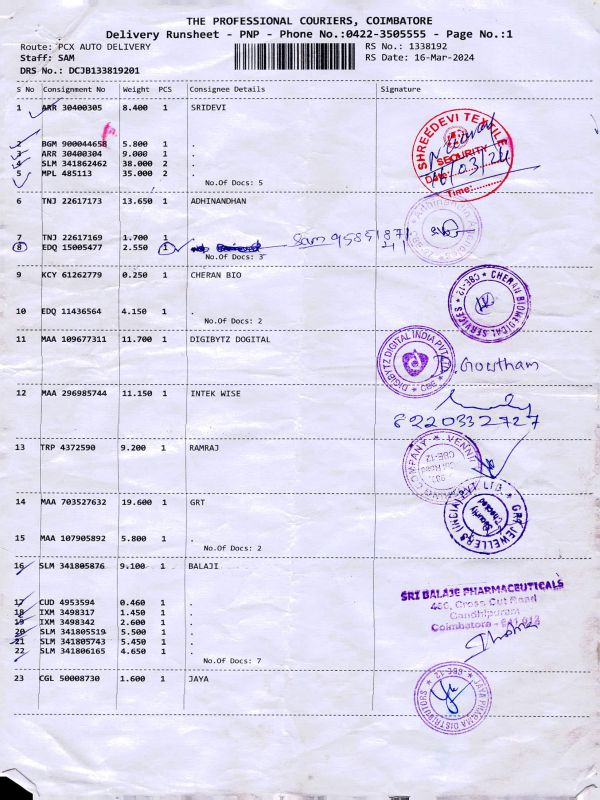 THE PROFESSIONAL COURIERS, COIMBATORE
Delivery Runsheet - PNP - Phone No.:0422-3505555 - Page No.:1
Route: PCX AUTO DELIVERY RS No.: 1338192
Staff: SAM RS Date: 16-Mar-2024
DRS No.: DCJB133819201
S No Consignment No Weight PCS Consignee Details Signature
1 ARR 30400305 8.400 1 SRIDEVI
SHREEDEVI TEXTILE
2 BGM 900044658 5.800 1 .
3 ARR 30400304 9.000 1 .
SECURITY
4 SLM 341862462 38.000 2 .
5 MPL 485113 35.000 2 .
Date: 16/03/24
No.Of Docs: 5
Time:..........
6 TNJ 22617173 13.650 1 ADHINANDHAN
7 TNJ 22617169 1.700 1
8 EDQ 15005477 2.550 1 Sam
No.Of Docs: 3
9 KCY 61262779 0.250 1 CHERAN BIO
CHERAN BIOMEDICAL SERVICES * CBE-12 *
10 EDQ 11436564 4.150 1 .
No.Of Docs: 2
11 MAA 109677311 11.700 1 DIGIBYTZ DOGITAL
DIGIBYTZ DIGITAL INDIA PVT LTD * CBE *
Goutham
12 MAA 296985744 11.150 1 INTEK WISE
8220332727
13 TRP 4372590 9.200 1 RAMRAJ
CBE-12
14 MAA 703527632 19.600 1 GRT
GRT JEWELLERS (INDIA) PVT LTD
Security
Checked
15 MAA 107905892 5.800 1 .
No.Of Docs: 2
16 SLM 341805876 9.100 1 BALAJI
SRI BALAJE PHARMACEUTICALS
17 CUD 4953594 0.460 1 .
456, Cross Cut Road
18 IXM 3498317 1.450 1 .
Gandhipuram
19 IXM 3498342 2.600 1 .
Coimbatore - 641 012
20 SLM 341805519 5.500 1 .
21 SLM 341805743 5.450 1 .
22 SLM 341806165 4.650 1 .
No.Of Docs: 7
23 CGL 50008730 1.600 1 JAYA
JAYA PHARMA DISTRIBUTORS * CBE-12 *